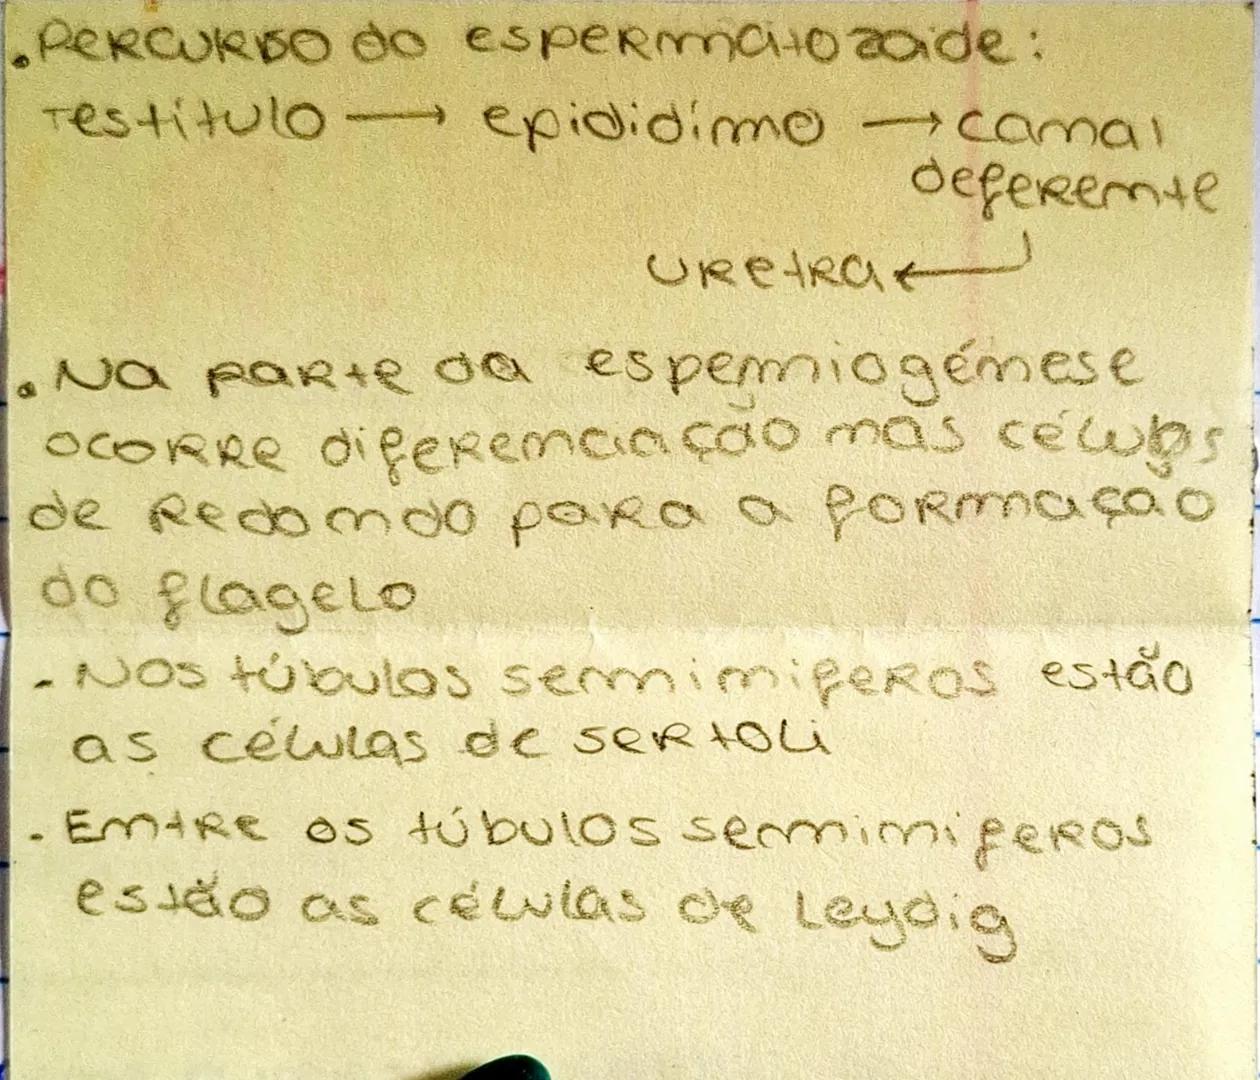 . Percurso do espermatozoide:
Testítulo → epididímo → canal
deferente
uretra ←
. Na parte da espermiogénese
ocorre diferenciação nas células
de redondo para a formação
do flagelo
. Nos túbulos seminiferos estão
as células de sertoli
. Entre os túbulos seminiferos
estão as células de Leydig